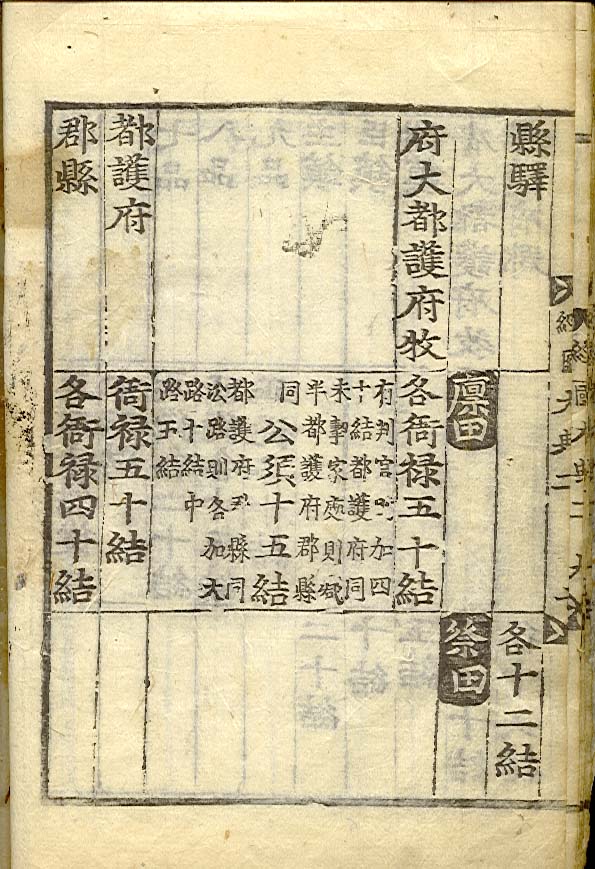 縣驛
各十二結
廩田
祭田
府大都護府牧
各衙禄五十結
有判官則加四
十結都護府同
未挈家處則減
半都護府郡縣
同
公須十五結
都護府至縣同
沿路則各加大
路十結中
路五結
都護府
衙禄五十結
郡縣
各衙禄四十結